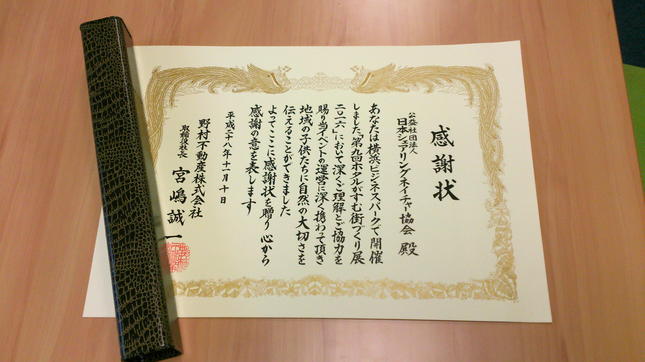 感謝状
公益社団法人
日本シェアリングネイチャー協会 殿
あなたは横浜ビジネスパークで開催
しました「第九回ホタルがすむ街づくり展
二〇一六」において深くご理解とご協力を
賜り当イベントの運営に深く携わって頂き
地域の子供たちに自然の大切さを
伝えることができました
よってここに感謝状を贈り心から
感謝の意を表します
平成二十八年十一月十日
野村不動産株式会社
取締役社長 宮嶋誠一